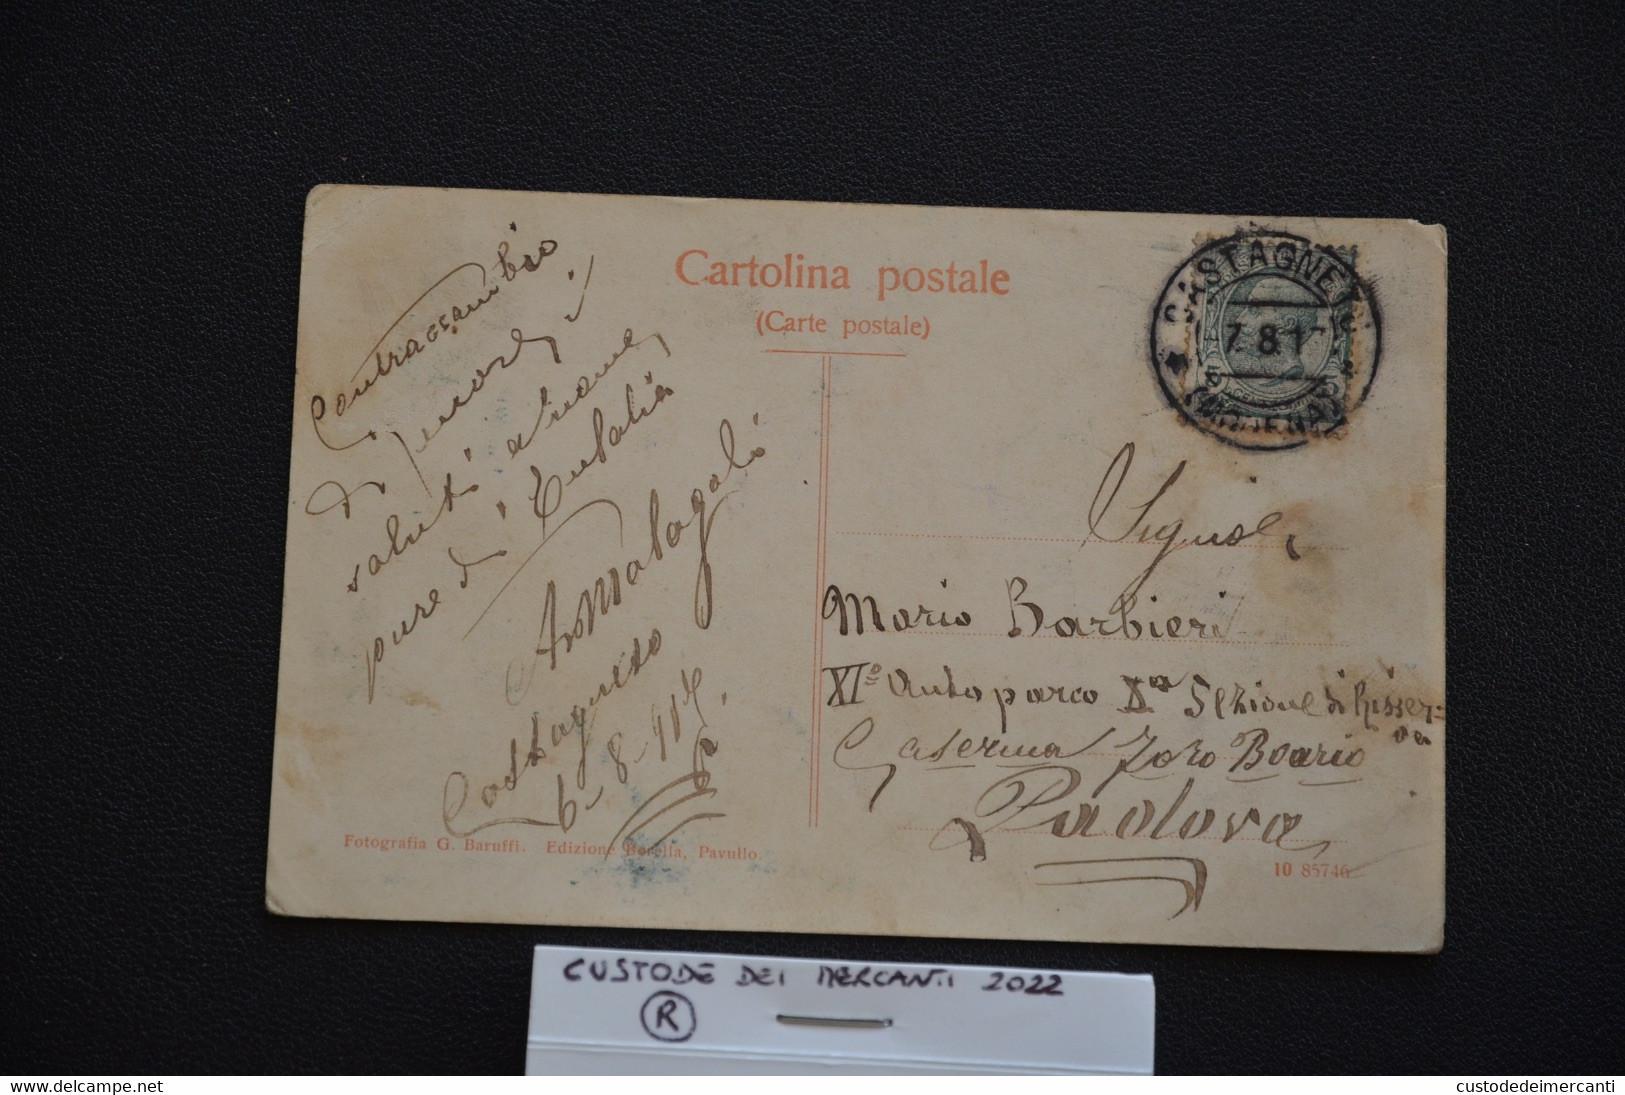 Cartolina postale
(Carte postale)
CASTAGNETO
7.8.1
(MODENA)
Contraccambio
di cuore i
saluti anche
pure di Eufalia
Castagneto
6-8-917
Signor
Mario Barbieri
XIº Autoparco Xa Sezione di Risser=
va
Caserma Foro Boario
Padova
Fotografia G. Baruffi. Edizione Borella, Pavullo.
10 85746
CUSTODE DEI MERCANTI 2022
R
delcampe.net
custodedeimercanti